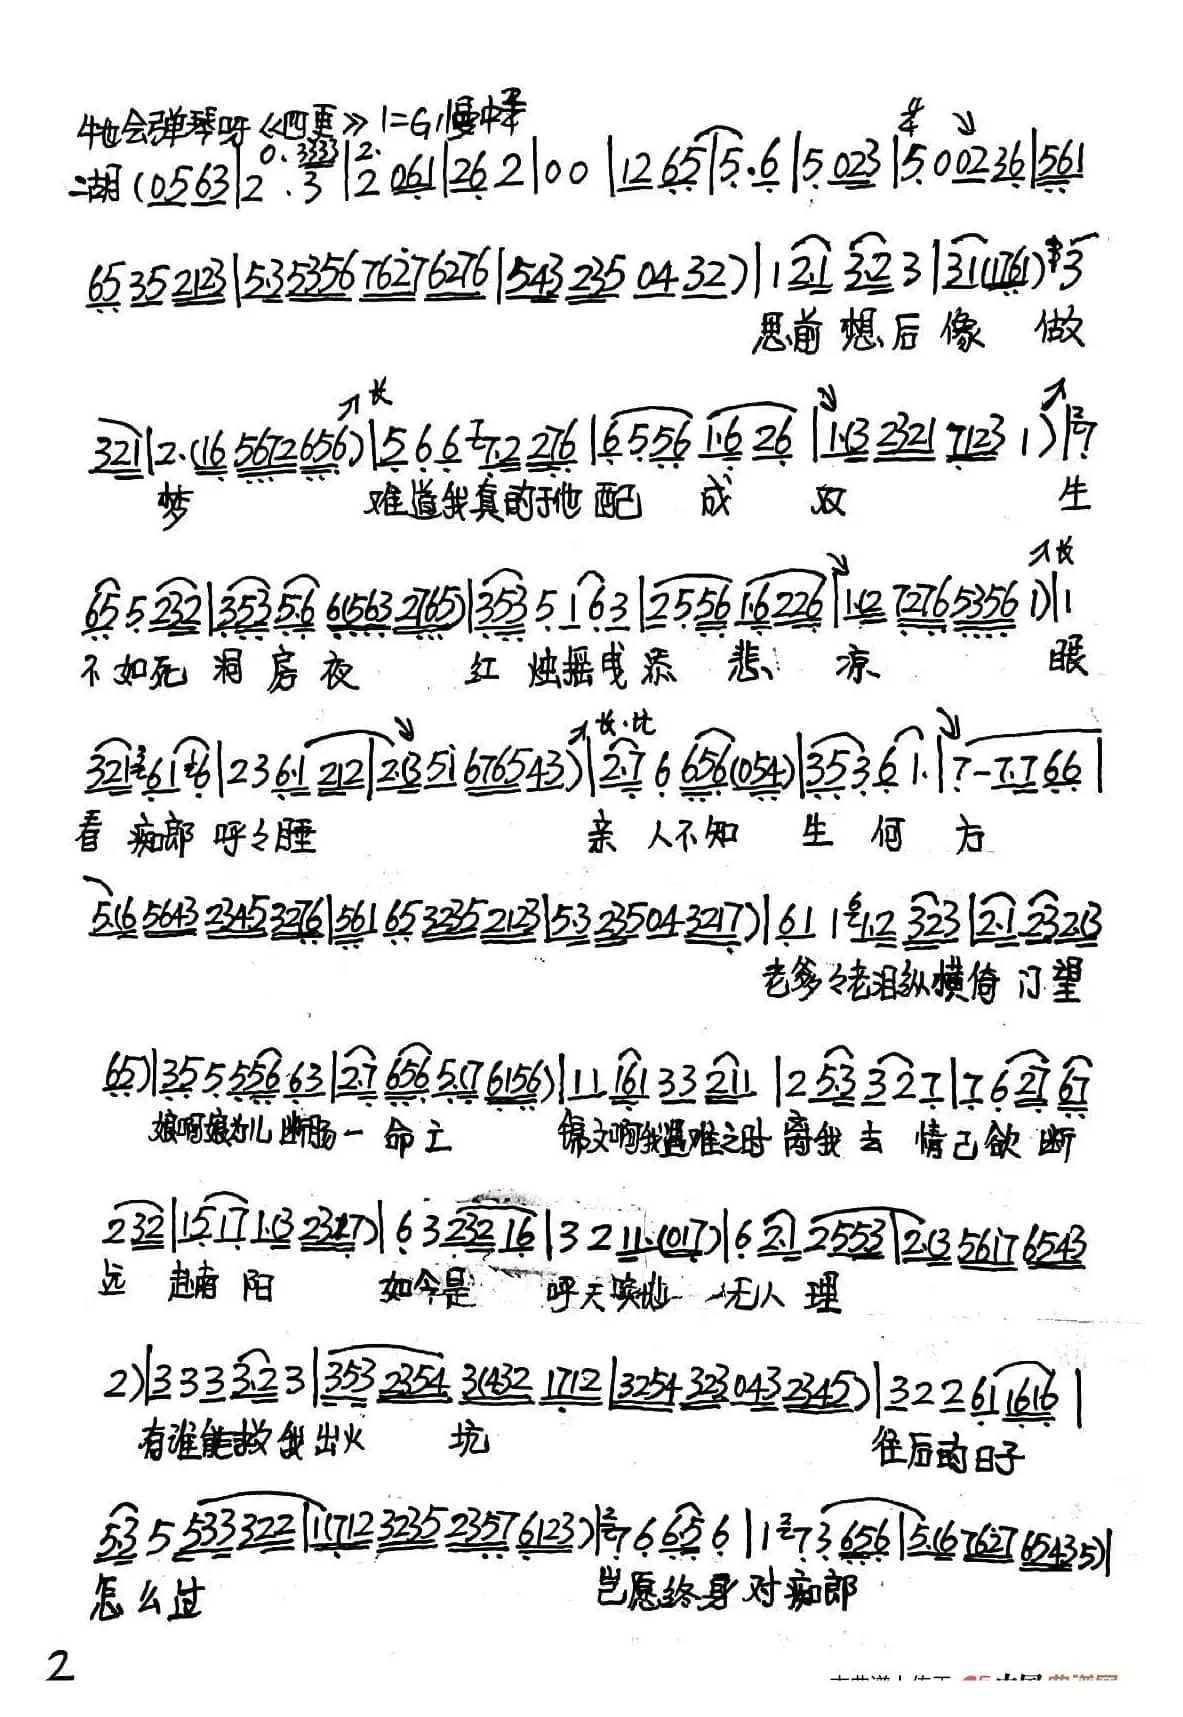 牛也会弹琴呀《四更》 1=G 慢中
二胡 (0563|2 0.3333 . 3|2 2. 061|26 2|0 0|12 65|5.6|5 023|5 0 02 36|561
65 35 2123|53 5356 7627 6276|543 235 04 32)|1 2.1 3.2 3|31(1761) 3
思前 想后 像 做
321|2.(16 5672 656)|5 6 6 7.2 276|6 5 56 1.6 26|1.(3 2321 7123 1)|7
长
梦 难道我真的于他 配 成 双 生
65 5 232|353 5.6 6(563 2765)|353 5 1 6 3|2 5 56 1.6 226|1.(2 7276 5356 1)|1
长
不如死 洞 房 夜 红 烛摇曳 添 悲 凉 眼
321 6 1 6|2 3 6.1 212|2.(3 51 676543)|2.7 6 656(054)|353 6 1.|7 - 7.7 66|
看 痴郎 呼々睡 亲 人不知 生 何 方
5.(6 5643 2345 3276|561 65 3235 2123|5.3 235 04 3217)|61 1 1.2 323|2.1 23 2.(3
老爹々老泪纵横倚 门 望
65)|35 5 556 63|2.7 656 5.(7 6156)|11 161 33 211|2 5.3 3 2 7|7 6 27 67
娘啊娘为儿 断肠一 命亡 锦文啊我遇难之时 离我 去 情已欲 断
2 32|15 17 1.(3 2317)|6 3 232 16|3 2 11.(017)|6 2.1 2553|2.(3 5617 6543
远 越南 阳 如今是 呼天 无人 理
2)|3 3 3 3.2 3|353 2354 3(432 1712|3254 323 043 2345)|3 2 2 61 1616|
有谁能救 我 出火 坑 往后的日子
53 5 533 322|1(712 3235 2357 6123)|7 6 6.5 6|1 7 3 656|5.(6 7627 65435)|
怎么过 岂愿终身 对 痴郎
2